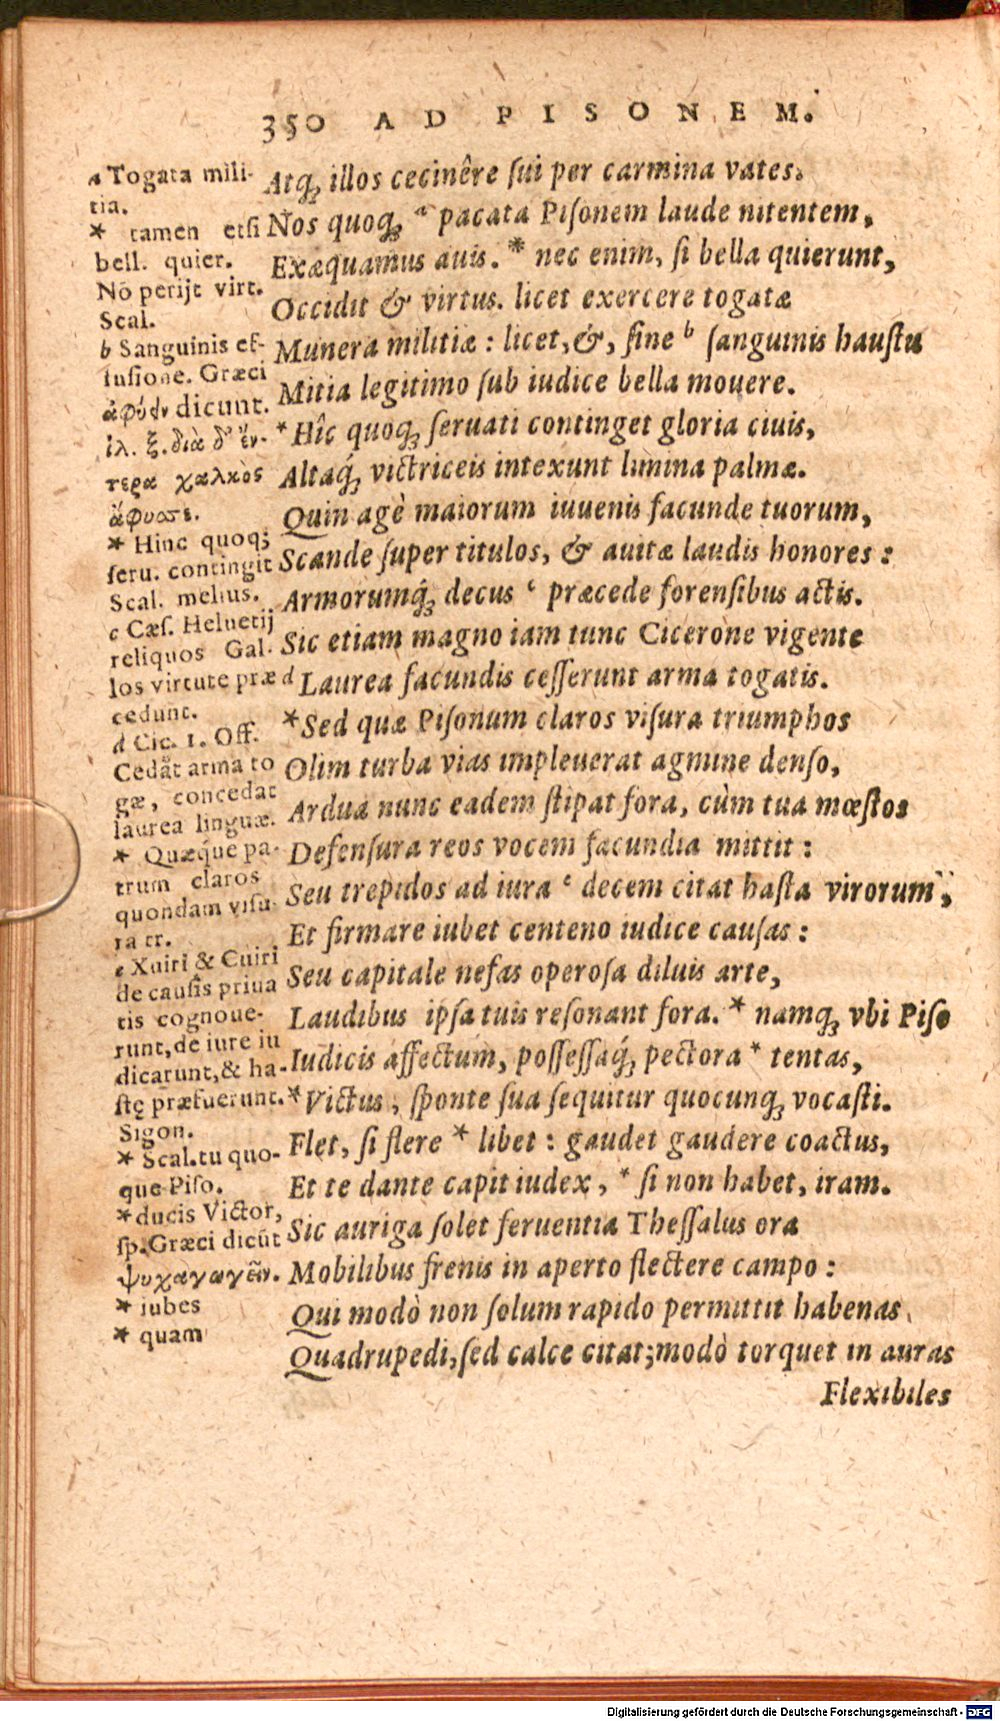 350 AD PISONEM.
Atq́ꝫ illos cecinêre ſui per carmina vates.
Nos quoqꝫ ᵃ pacata Piſonem laude nitentem,
Exæquamus auis. * nec enim, ſi bella quierunt,
Occidit & virtus. licet exercere togatæ
Munera militiæ : licet, &, ſine ᵇ ſanguinis hauſtu
Mitia legitimo ſub iudice bella mouere.
*Hîc quoqꝫ ſeruati continget gloria ciuis,
Altaq́ꝫ victriceis intexunt limina palmæ.
Quin agè maiorum iuuenis facunde tuorum,
Scande ſuper titulos, & auitæ laudis honores :
Armorumq́ꝫ decus ᶜ præcede forenſibus actis.
Sic etiam magno iam tunc Cicerone vigente
d Laurea facundis ceſſerunt arma togatis.
*Sed quæ Piſonum claros viſura triumphos
Olim turba vias impleuerat agmine denſo,
Ardua nunc eadem ſtipat fora, cùm tua mœſtos
Defenſura reos vocem facundia mittit :
Seu trepidos ad iura ᵉ decem citat haſta virorum,
Et firmare iubet centeno iudice cauſas :
Seu capitale nefas operoſa diluis arte,
Laudibus ipſa tuis reſonant fora. * namqꝫ vbi Piſo
Iudicis affectum, poſſeſſaq́ꝫ pectora * tentas,
*Victus, ſponte ſua ſequitur quocunqꝫ vocaſti.
Flet, ſi flere * libet : gaudet gaudere coactus,
Et te dante capit iudex, * ſi non habet, iram.
Sic auriga ſolet feruentia Theſſalus ora
Mobilibus frenis in aperto flectere campo :
Qui modò non ſolum rapido permittit habenas
Quadrupedi, ſed calce citat; modò torquet in auras
Flexibiles
a Togata mili-
tia.
* tamen etſi
bell. quier.
Nō perijt virt.
Scal.
b Sanguinis ef-
fuſione. Græci
ἀφύειν dicunt.
ἰλ. ξ. διὰ δ᾽ ἔν-
τερα χαλκὸς
ἄφυσσε.
* Hinc quoqꝫ
ſeru. contingit
Scal. melius.
c Cæſ. Heluetij
reliquos Gal-
los virtute præ
cedunt.
d Cic. 1. Off.
Cedāt arma to
gæ, concedat
laurea linguæ.
* Quæque pa-
trum claros
quondam viſu-
ra tr.
e Xuiri & Cuiri
de cauſis priua
tis cognoue-
runt, de iure iu
dicarunt, & ha-
ſtę præfuerunt.
Sigon.
* Scal. tu quo-
que Piſo.
* ducis Victor,
ſp. Græci dicūt
ψυχαγωγεῖν.
* iubes
* quam
Digitalisierung gefördert durch die Deutsche Forschungsgemeinschaft - DFG